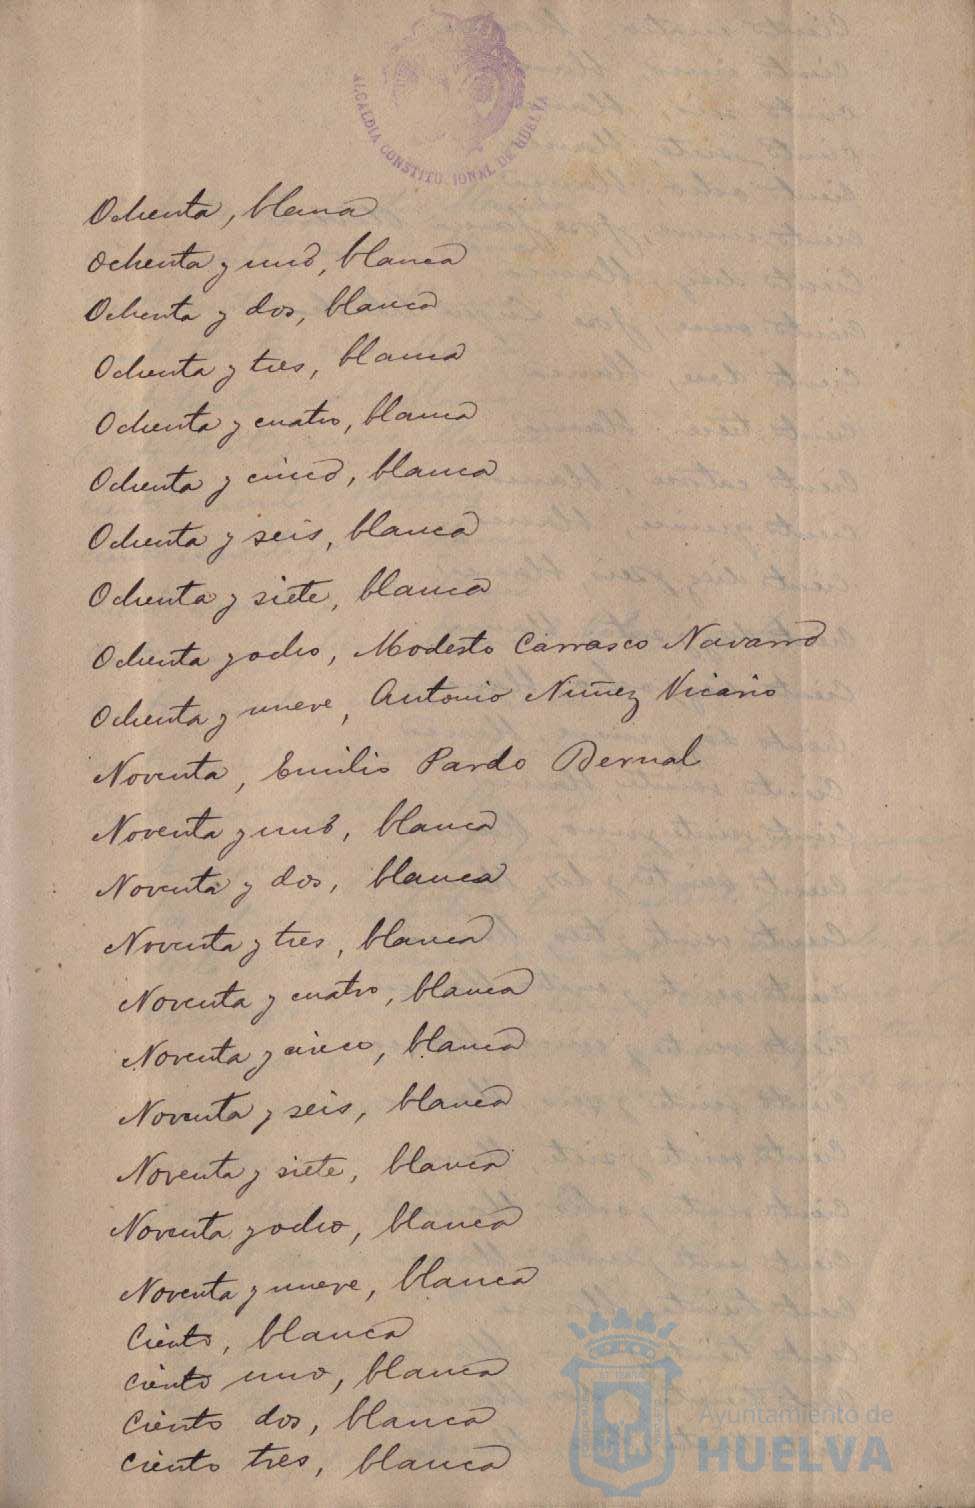 ALCALDIA CONSTITUCIONAL DE HUELVA
Ochenta, blanca
Ochenta y uno, blanca
Ochenta y dos, blanca
Ochenta y tres, blanca
Ochenta y cuatro, blanca
Ochenta y cinco, blanca
Ochenta y seis, blanca
Ochenta y siete, blanca
Ochenta y ocho, Modesto Carrasco Navarro
Ochenta y nueve, Antonio Nuñez Vicario
Noventa, Emilio Pardo Bernal
Noventa y uno, blanca
Noventa y dos, blanca
Noventa y tres, blanca
Noventa y cuatro, blanca
Noventa y cinco, blanca
Noventa y seis, blanca
Noventa y siete, blanca
Noventa y ocho, blanca
Noventa y nueve, blanca
Ciento, blanca
Ciento uno, blanca
Ciento dos, blanca
Ciento tres, blanca
Ayuntamiento de
HUELVA